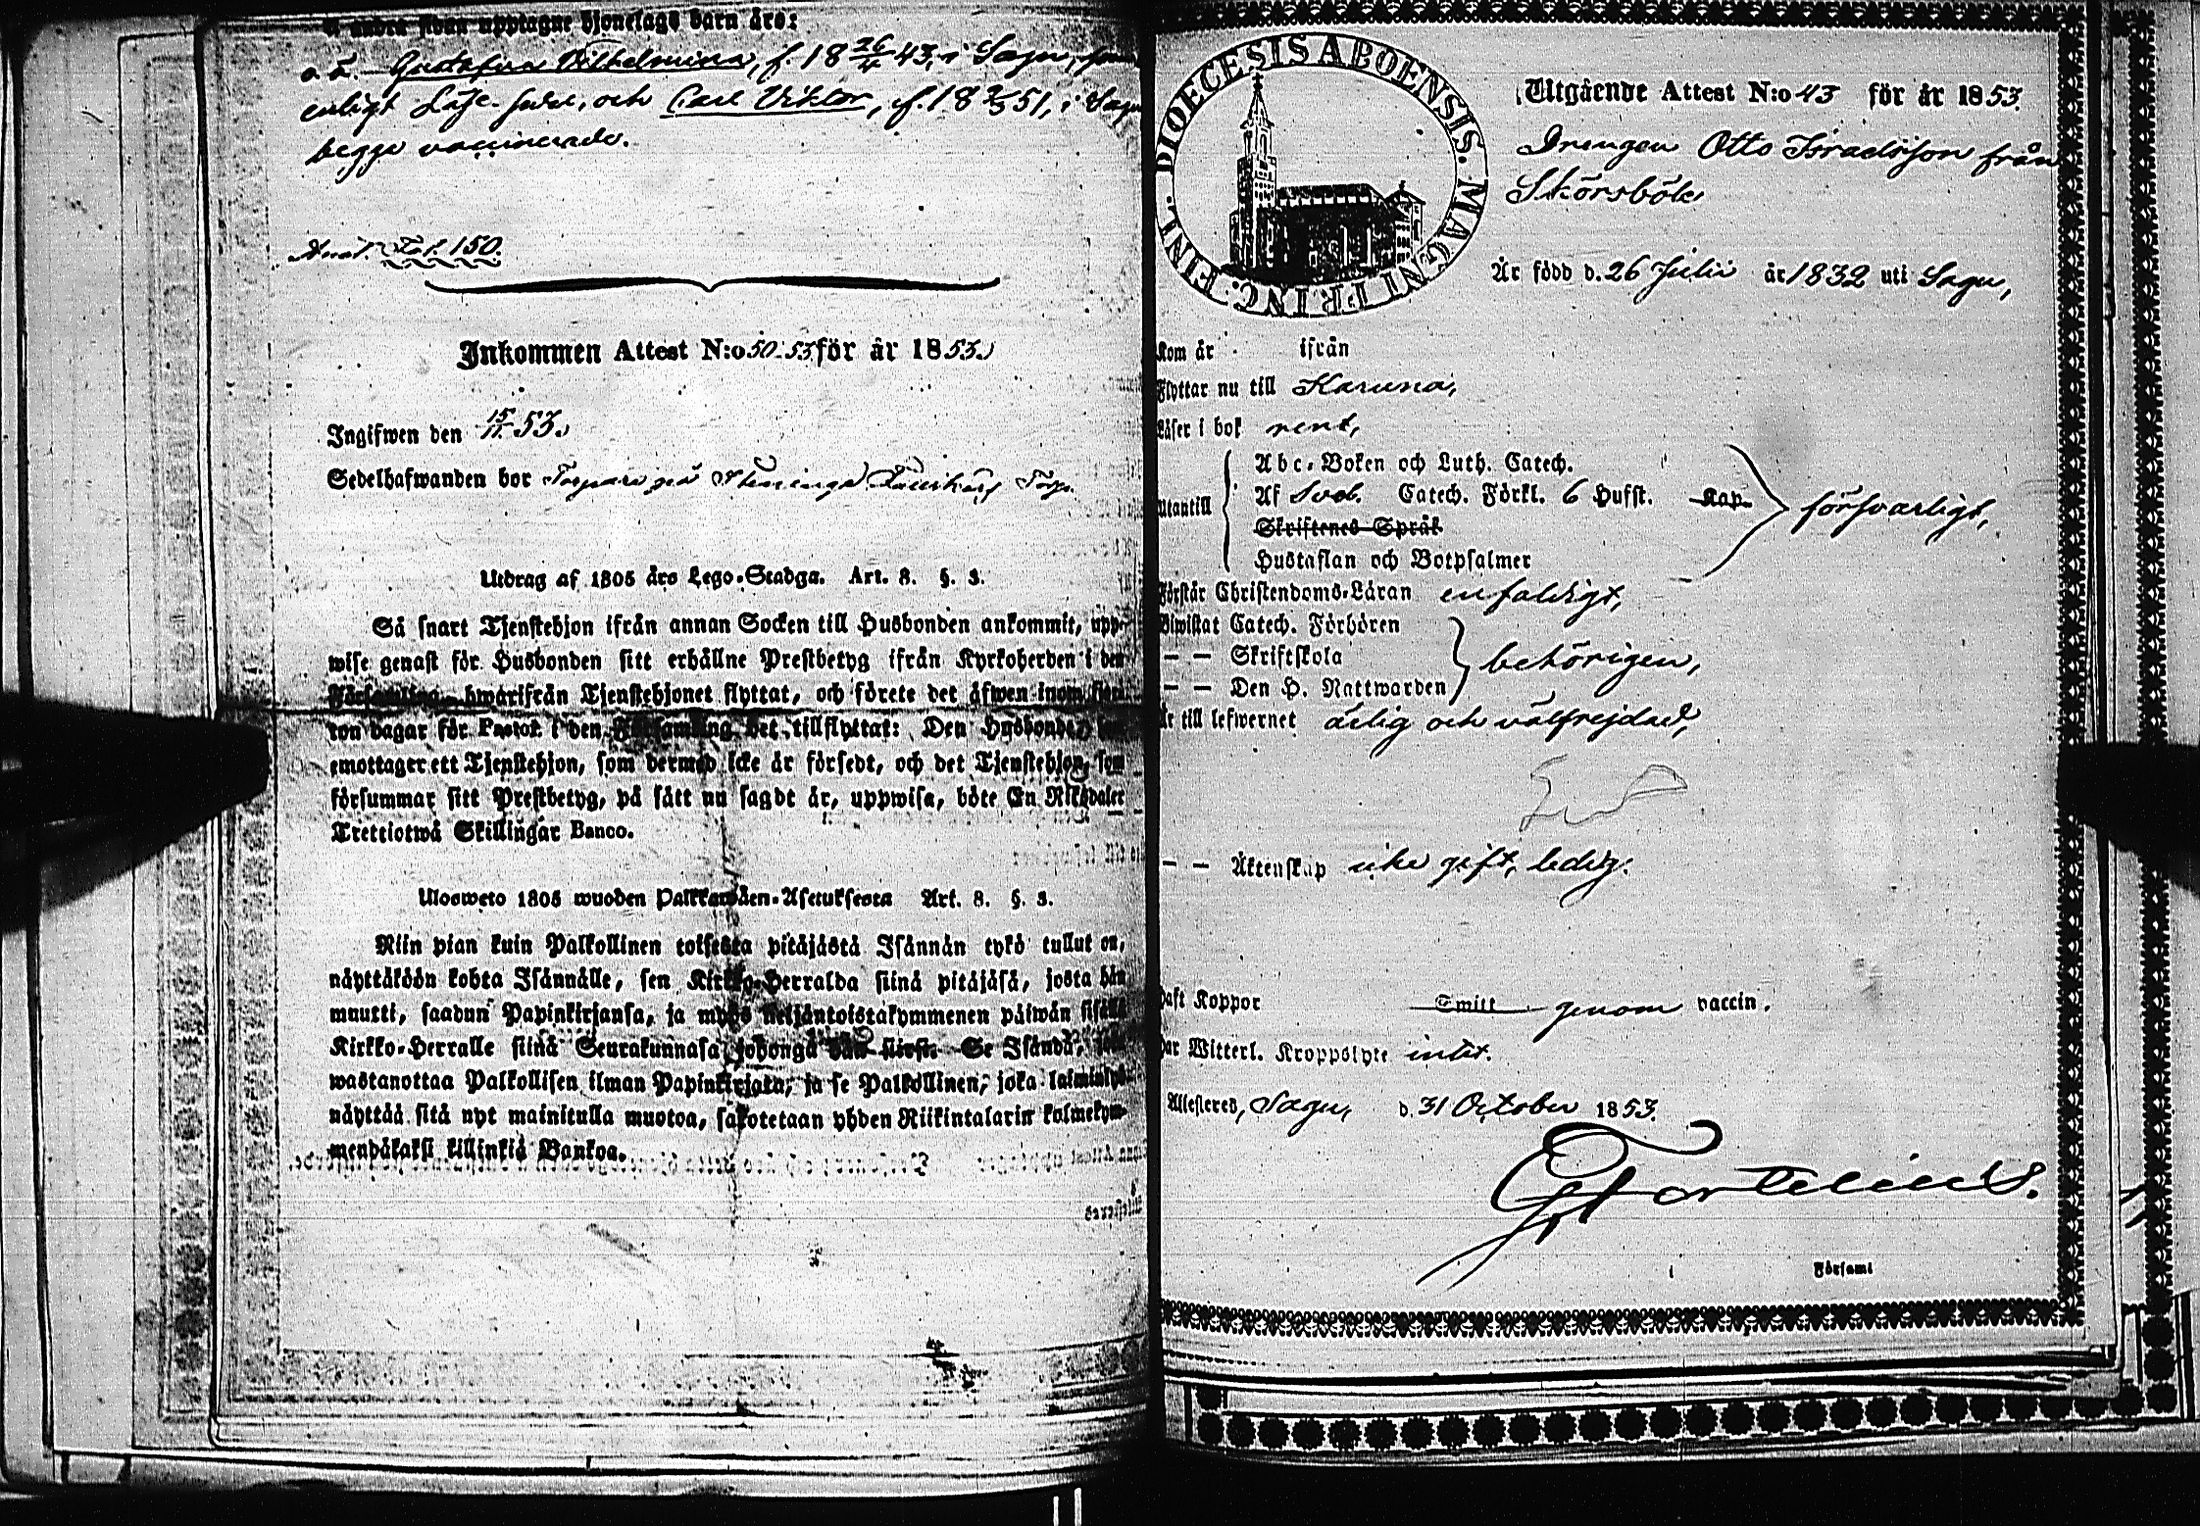 å andra sidan upptagne hjonelags barn äro:
o. ä. Gustafva Wilhelmina, f. 18 26/4 43, i Sagu,
enligt Läse- och Carl Viktor, f. 18 51, i Sagu
begge vaccinerade.
Anat. Fol. 150.
Inkommen Attest N:o 50-53 för år 1853.
Ingifwen den 15/11 53.
Sedelhafwanden bor Torpare på
Utdrag af 1805 års Lego-Stadga. Art. 8. §. 3.
Så snart Tjenstehjon ifrån annan Socken till Husbonden ankommit, upp-
wise genast för Husbonden sitt erhållne Prestbetyg ifrån Kyrkoherden i den
Församling, hwarifrån Tjenstehjonet flyttat, och förete det äfwen inom fjor-
ton dagar för Pastor i den Församling det tillflyttat: Den Husbonde, som
emottager ett Tjenstehjon, som dermed icke är försedt, och det Tjenstehjon, som
försummar sitt Prestbetyg, på sätt nu sagdt är, uppwisa, böte En Riksdaler
Trettiotwå Skillingar Banco.
Ulosweto 1805 wuoden Palkkawäen-Asetuksesta Art. 8. §. 3.
Niin pian kuin Palkollinen toisesta pitäjästä Isännän tykö tullut on,
näyttäköön kohta Isännälle, sen Kirkko-Herralda siinä pitäjäsä, josta hän
muutti, saadun Papinkirjansa, ja myös neljäntoistakymmenen päiwän sisällä
Kirkko-Herralle siinä Seurakunnasa, johonga hän siirsi. Se Isändä, joka
wastanottaa Palkollisen ilman Papinkirjata, ja se Palkollinen, joka laiminlyö
näyttää sitä nyt mainitulla muotoa, sakotetaan yhden Riikintalarin kolmekym-
mendäkaksi killinkiä Bankoa.
DIOECESIS ABOENSIS. MAGNI PRINC. FINL.
Utgående Attest N:o 43 för år 1853.
Drengen Otto Israelsson från
Skörsböle
Är född d. 26 Julii år 1832 uti Sagu,
Kom år ifrån
Flyttar nu till Karuna,
Läser i bok rent,
Utantill
Abc-Boken och Luth. Catech.
Af Sveb. Catech. Förkl. 6 Hufst. Kap.
Skriftenes Språk
Hustaflan och Botpsalmer
försvarligt,
Förstår Christendoms-Läran enfaldigt,
Biwistat Catech. Förhören
— — Skriftskola
— — Den H. Nattwarden
behörigen,
Är till lefwernet ärlig och välfrejdad,
— — Äktenskap icke gift, ledig.
Haft Koppor Smitt genom vaccin.
Har Witterl. Kroppslyte intet.
Attesteres, Sagu, d. 31 October 1853.
i Församl